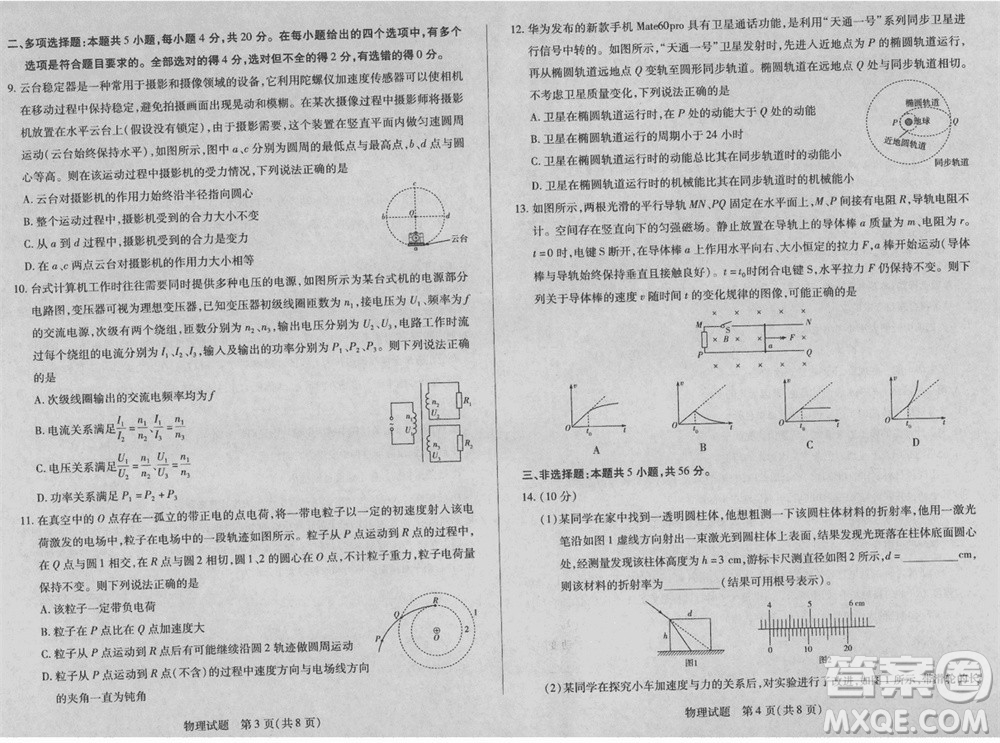 二、多项选择题:本题共5小题,每小题4分,共20分。在每小题给出的四个选项中,有多个
选项是符合题目要求的。全部选对的得4分,选对但不全的得2分,有选错的得0分。
9. 云台稳定器是一种广泛应用于摄影和摄像领域的设备,它利用陀螺仪加速度传感器来保持相机
在移动过程中保持稳定,避免拍摄出现晃动和模糊。在某次摄像工作中,摄影师将摄影
机放置在水平云台上(假设没有锁定),由于需要,这个装置在竖直平面内做匀速圆周
运动(云台始终保持水平),如图所示,图中a、c分别为圆周的最低点与最高点,b、d与圆
心等高。则在该过程中摄影机的受力情况,下列说法正确的是
A. 云台对摄影机的作用力始终沿半径指向圆心
B. 整个运动过程中,摄影机的合力大小不变
C. 从a到d过程中,摄影机受到的合力是变力
D. 在a、c两点云台对摄影机的作用力大小相等
a
b
c
d
O
云台
10. 台式计算机工作时往往需要同时提供多组电压的电源,如图所示为某台式机的电源部分
电路图,变压器可视为理想变压器,已知变压器初级线圈匝数为n₁,接电压为U₁、频率为f
的交流电源,次级有两个绕组,匝数分别为n₂、n₃,输出电压分别为U₂、U₃,电路工作时流
过每个绕组的电流分别为I₁、I₂、I₃,输入与输出的功率分别为P₁、P₂、P₃。则下列说法正
确的是
A. 次级线圈输出的交流电频率均为f
B. 电流关系满足I₁/I₂=n₂/n₁、I₁/I₃=n₃/n₁
C. 电压关系满足U₁/U₂=n₁/n₂、U₁/U₃=n₁/n₃
D. 功率关系满足P₁=P₂+P₃
n₁
U₁
n₂
U₂
R₁
n₃
U₃
R₂
11. 在真空中的O点存在一孤立的带正电的点电荷,将一带电粒子以一定的初速度射入该电
场中,粒子在电场中的一段轨迹如图所示。粒子从P点运动到R点的过程中,轨迹与圆
在Q点相交、在R点与圆2相切,Q点是轨迹上的一点,不计粒子重力,粒子电荷量
保持不变。则下列说法正确的是
A. 该粒子一定带负电荷
B. 粒子在P点比在Q点加速度大
C. 粒子从P点运动到R点后有可能继续沿圆2轨迹做圆周运动
D. 粒子从P点运动到R点(不含)的过程中速度方向与电场线方向
的夹角一直为钝角
P
Q
R
O
1
2
物理试题 第3页(共8页)
12. 华为发布的新款手机Mate60pro具有卫星通话功能,是利用“天通一号”系列同步卫星进
行信号中转的。如图所示,“天通一号”卫星发射时,先进入近地轨道,再从近地点P变轨至椭圆轨道,
再从椭圆轨道远地点Q变轨至圆形同步轨道。椭圆轨道远地点与同步轨道相切。
不考虑卫星质量的变化,下列说法正确的是
A. 卫星在椭圆轨道运行时,在P的动能大于Q处的动能
B. 卫星在椭圆轨道运行的周期小于24小时
C. 卫星在椭圆轨道运行时的动能总比其在同步轨道的动能小
D. 卫星在椭圆轨道运行时的机械能比其在同步轨道时的机械能小
椭圆轨道
P
地球
Q
近地圆轨道
同步轨道
13. 如图所示,两根光滑的平行导轨MN、PQ固定在水平面上,M、P间有定值电阻R,导轨电阻不
计。空间存在竖直向下的匀强磁场。静止放置在导轨上的导体棒a质量为m、电阻为r。
t=0时,电键S断开,在导体棒a上作用水平向右、大小恒定的拉力F,使a开始运动(导体
棒与导轨始终垂直且接触良好)。t=t₀时,闭合电键S,水平拉力F仍保持不变。已知下
列关于导体棒的速度v随时间t的变化规律的图像,可能正确的是
M
S
N
R
B
F
a
P
Q
v
O
t₀
t
A
v
O
t₀
t
B
v
O
t₀
t
C
v
O
t₀
t
D
三、非选择题:本题共5小题,共56分。
14. (10分)
(1)某同学在家中找到一透明圆柱体,他想测量一下该圆柱体材料的折射率,他使用一激光
笔沿如图1虚线方向射出一束激光到圆柱体上表面,结果发现光斑落在圆柱体底部中心处,
经测量发现入射点距底面高度h=3 cm,游标卡尺测直径如图2所示,d=______cm,
则该材料的折射率为______(结果可用根号表示)。
d
h
图1
4 5 6 cm
0 5 10
图2
(2)某同学在探究小车加速度与力的关系时,对实验进行了改进,如图1所示,
物理试题 第4页(共8页)
答案圈
MXQE.COM